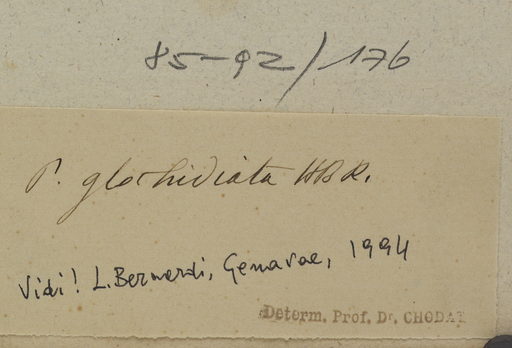 85-92/176
P. glochidiata HBK.
Vidi! L. Bernardi, Genavae, 1994
Determ. Prof. Dr. CHODAT